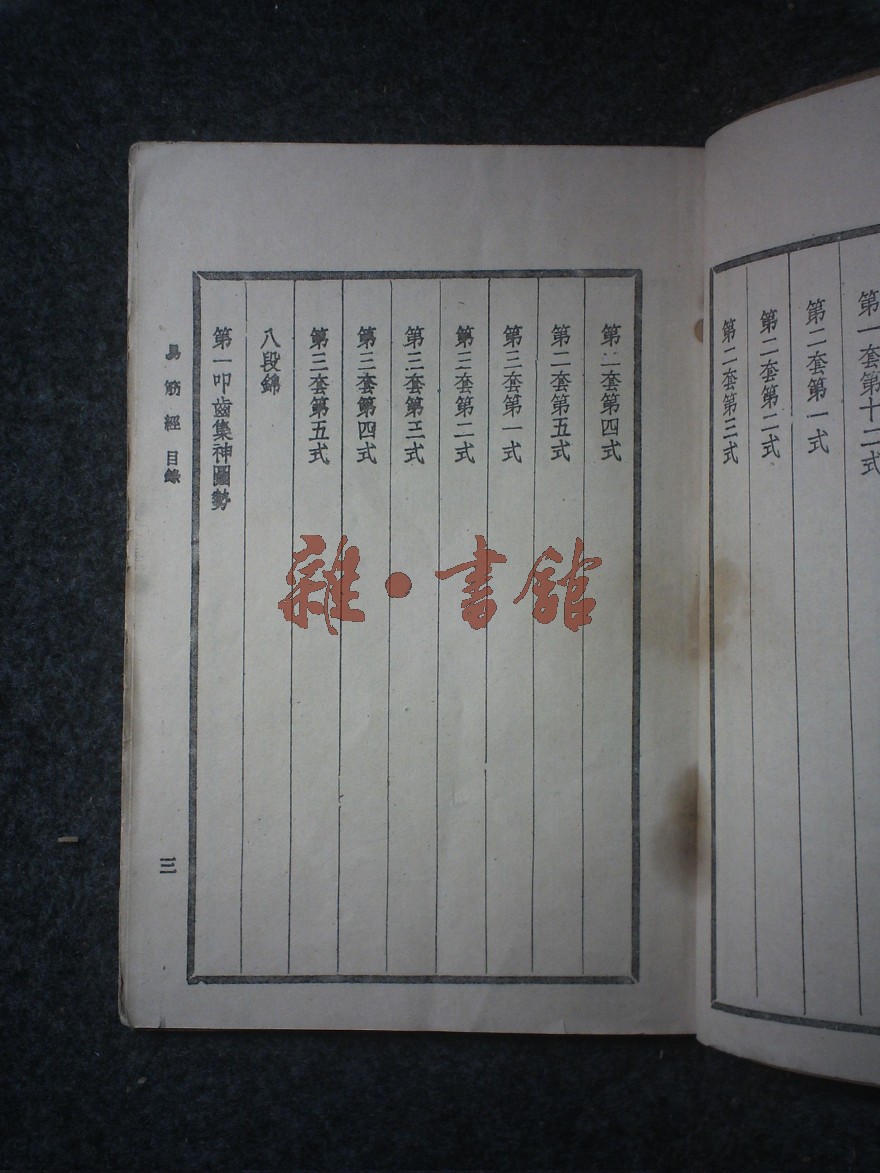 第一套第十二式
第二套第一式
第二套第二式
第二套第三式
第二套第四式
第二套第五式
第三套第一式
第三套第二式
第三套第三式
第三套第四式
第三套第五式
八段錦
第一叩齒集神圖勢
易筋經 目錄
三
雜·書館